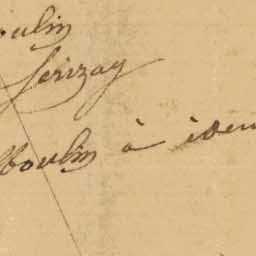 oulin
Serizay
Moulin à idem